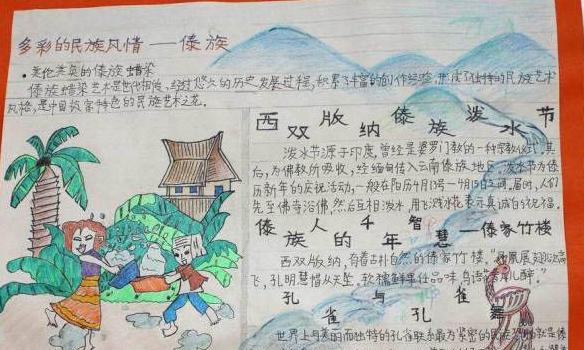 多彩的民族风情——傣族
•美伦美奂的傣族蜡染
傣族蜡染艺术是世代相传、经过悠久的历史发展过程，积累了丰富的创作经验，形成了独特的民族艺术
风格，是中国极富特色的民族艺术之花。
西双版纳傣族泼水节
泼水节源于印度，曾经是婆罗门教的一种宗教仪式，其
后，为佛教所吸收，经缅甸传入云南傣族地区，泼水节为傣
历新年的庆祝活动，一般在阳历4月13日—4月15日之间。届时，人们
先至佛寺浴佛，然后互相泼水，用飞溅水花表示真诚的祝福。
傣族人的千年智慧—傣家竹楼
西双版纳，有着古朴自然的傣家竹楼。
飞，孔明慧帽从天坠。软糯鲜
孔雀与孔雀舞
世界上与美丽而独特的孔雀联系最为紧密的民族